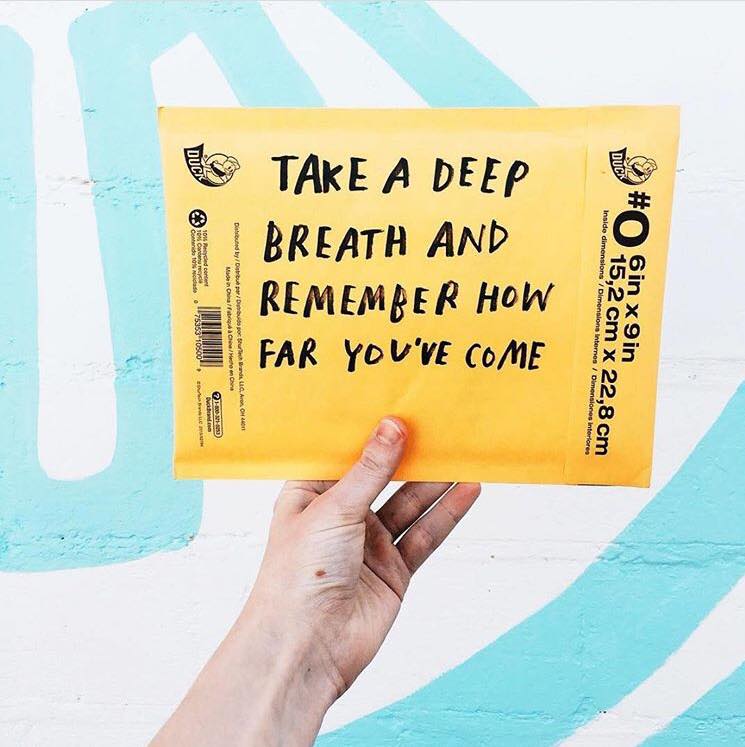 TAKE A DEEP
BREATH AND
REMEMBER HOW
FAR YOU'VE COME
DUCK
10% Recycled content
10% Contenu recyclé
Contenido 10% reciclado
Distributed by / Distribué par / Distribuido por: ShurTech Brands, LLC, Avon, OH 44011
Made in China / Fabriqué à Chine / Hecho en China
1-800-321-0253
DuckBrand.com
DUCK
#0
6in x 9in
15,2 cm x 22,8 cm
Inside dimensions / Dimensions internes / Dimensiones interiores